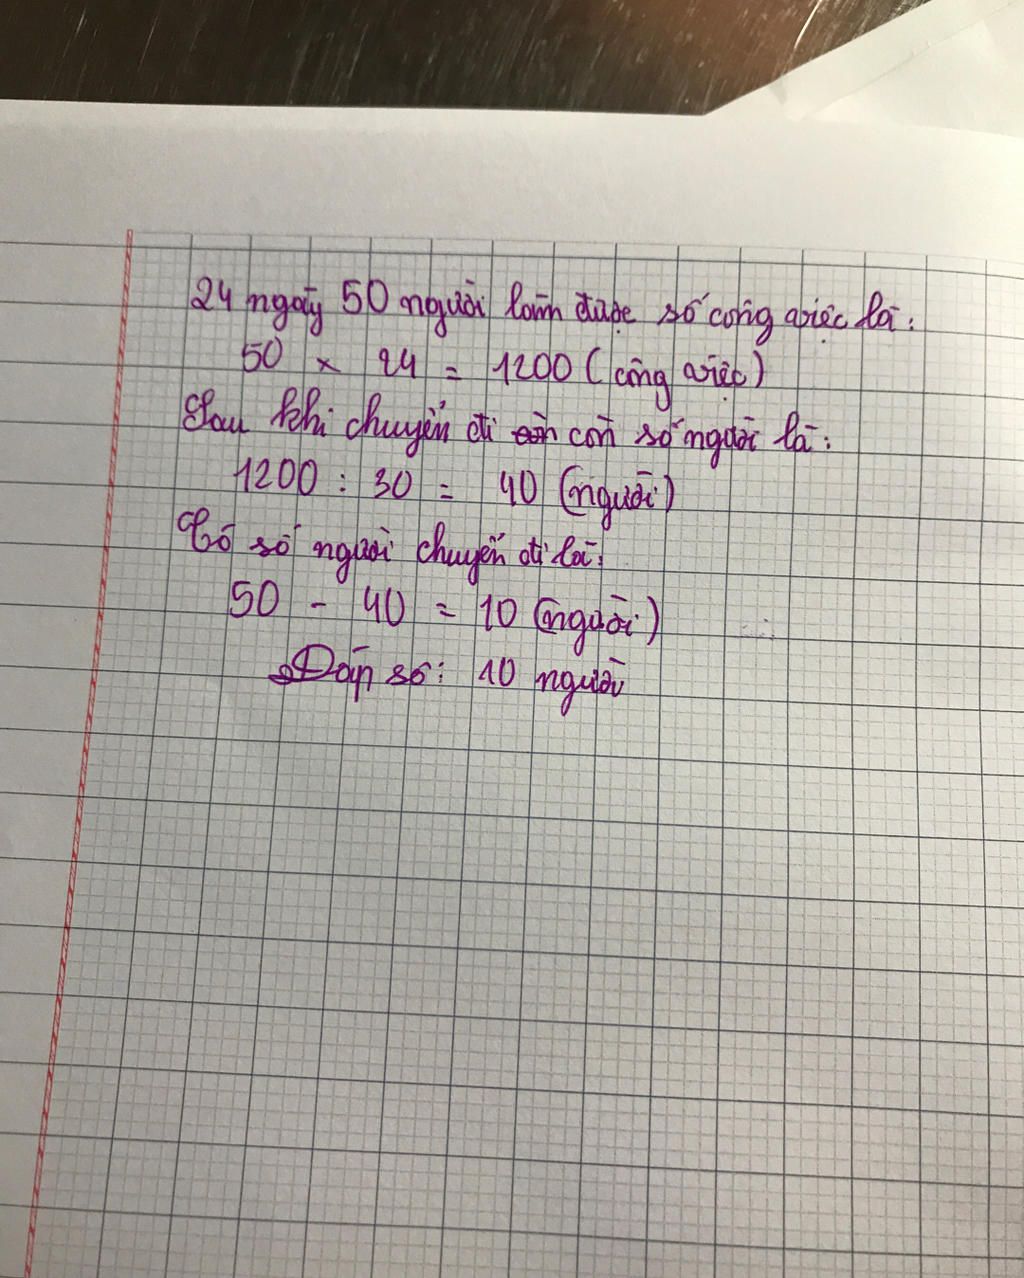 24 ngày 50 người làm được số công việc là:
50 × 24 = 1200 (công việc)
Sau khi chuyển đi còn số người là:
1200 : 30 = 40 (người)
Có số người chuyển đi là:
50 - 40 = 10 (người)
Đáp số: 10 người